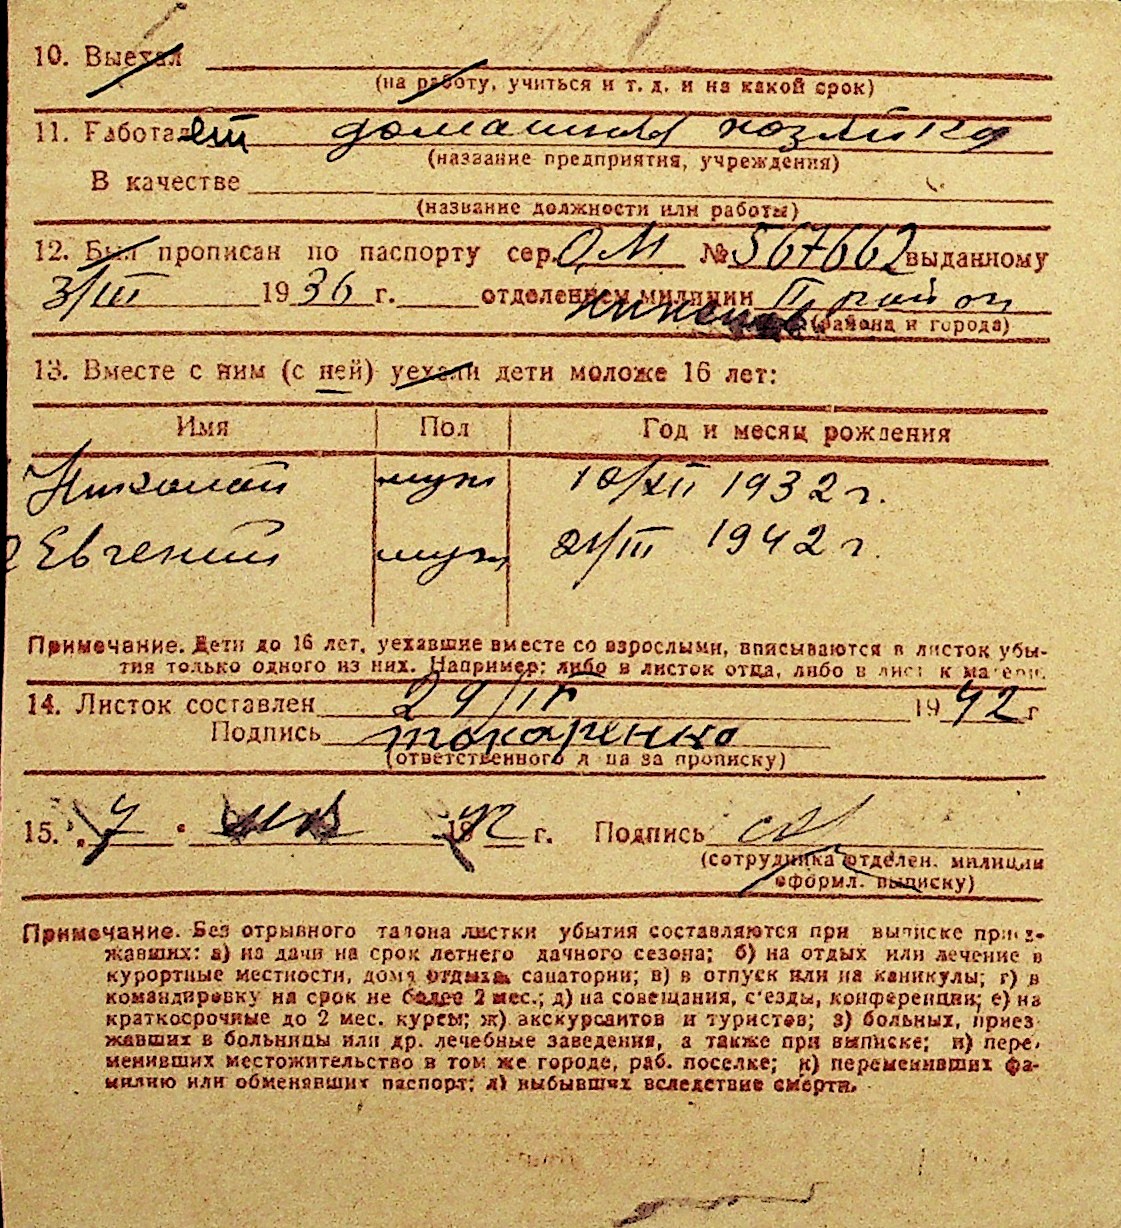 10. Выехал
(на работу, учиться и т. д. и на какой срок)
11. Работает домашняя хозяйка
(название предприятия, учреждения)
В качестве
(название должности или работы)
12. Был прописан по паспорту сер. ОМ № 567662 выданному
3/III 1936 г. отделением милиции II район
(района и города)
13. Вместе с ним (с ней) уехали дети моложе 16 лет:
Имя Пол Год и месяц рождения
Николай муж 10/XII 1932 г.
Евгений муж 21/III 1942 г.
Примечание. Дети до 16 лет, уехавшие вместе со взрослыми, вписываются в листок убы-
тия только одного из них. Например: либо в листок отца, либо в лист к матери.
14. Листок составлен 29/IV 1942 г
Подпись Токаренко
(ответственного лица за прописку)
15. „7 " 1942 г. Подпись
(сотрудника отделен. милиции
оформл. выписку)
Примечание. Без отрывного талона листки убытия составляются при выписке приез-
жавших: а) на дачи на срок летнего дачного сезона; б) на отдых или лечение в
курортные местности, дома отдыха, санатории; в) в отпуск или на каникулы; г) в
командировку на срок не более 2 мес.; д) на совещания, с'езды, конференции; е) на
краткосрочные до 2 мес. курсы; ж) экскурсантов и туристов; з) больных, приез
жавших в больницы или др. лечебные заведения, а также при выписке; и) пере-
менивших местожительство в том же городе, раб. поселке; к) переменивших фа-
милию или обменявших паспорт; л) выбывших вследствие смерти.